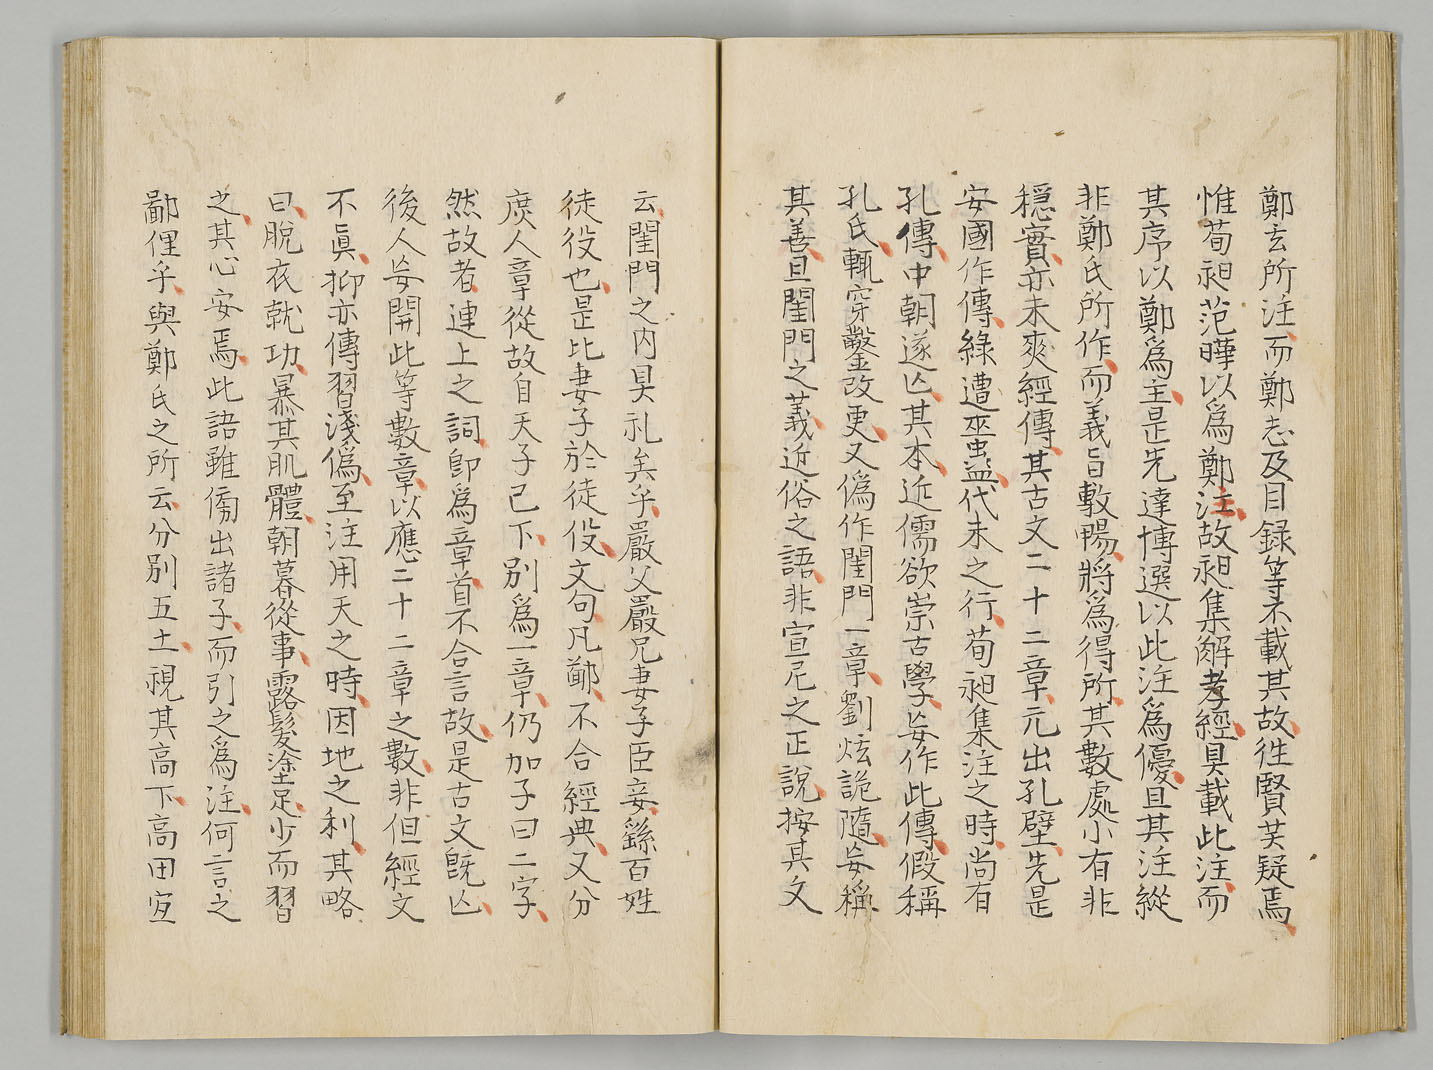 鄭玄所注而鄭志及目録等不載其故往賢共疑焉
惟荀昶范曄以爲鄭注故昶集解孝經具載此注而
其序以鄭爲主是先達博選以此注爲優且其注縱
非鄭氏所作而義旨敷暢將爲得所其數處小有非
穩實亦未爽經傳其古文二十二章元出孔壁先是
安國作傳縁遭巫蛊代未之行荀昶集注之時尚有
孔傳中朝遂亾其本近儒欲崇古學妄作此傳假稱
孔氏輒穿鑿改更又僞作閨門一章劉炫詭隨妄稱
其善且閨門之義近俗之語非宣尼之正說按其文
云閨門之内具礼矣乎嚴父嚴兄妻子臣妾繇百姓
徒役也是比妻子於徒役文句凡鄙不合經典又分
庶人章從故自天子已下別爲一章仍加子曰二字
然故者連上之詞即爲章首不合言故是古文旣亾
後人妄開此等數章以應二十二章之數非但經文
不眞抑亦傳習淺僞至注用天之時因地之利其略
曰脫衣就功暴其肌體朝暮從事露髮塗足少而習
之其心安焉此語雖傍出諸子而引之爲注何言之
鄙俚乎與鄭氏之所云分別五土視其高下高田宜